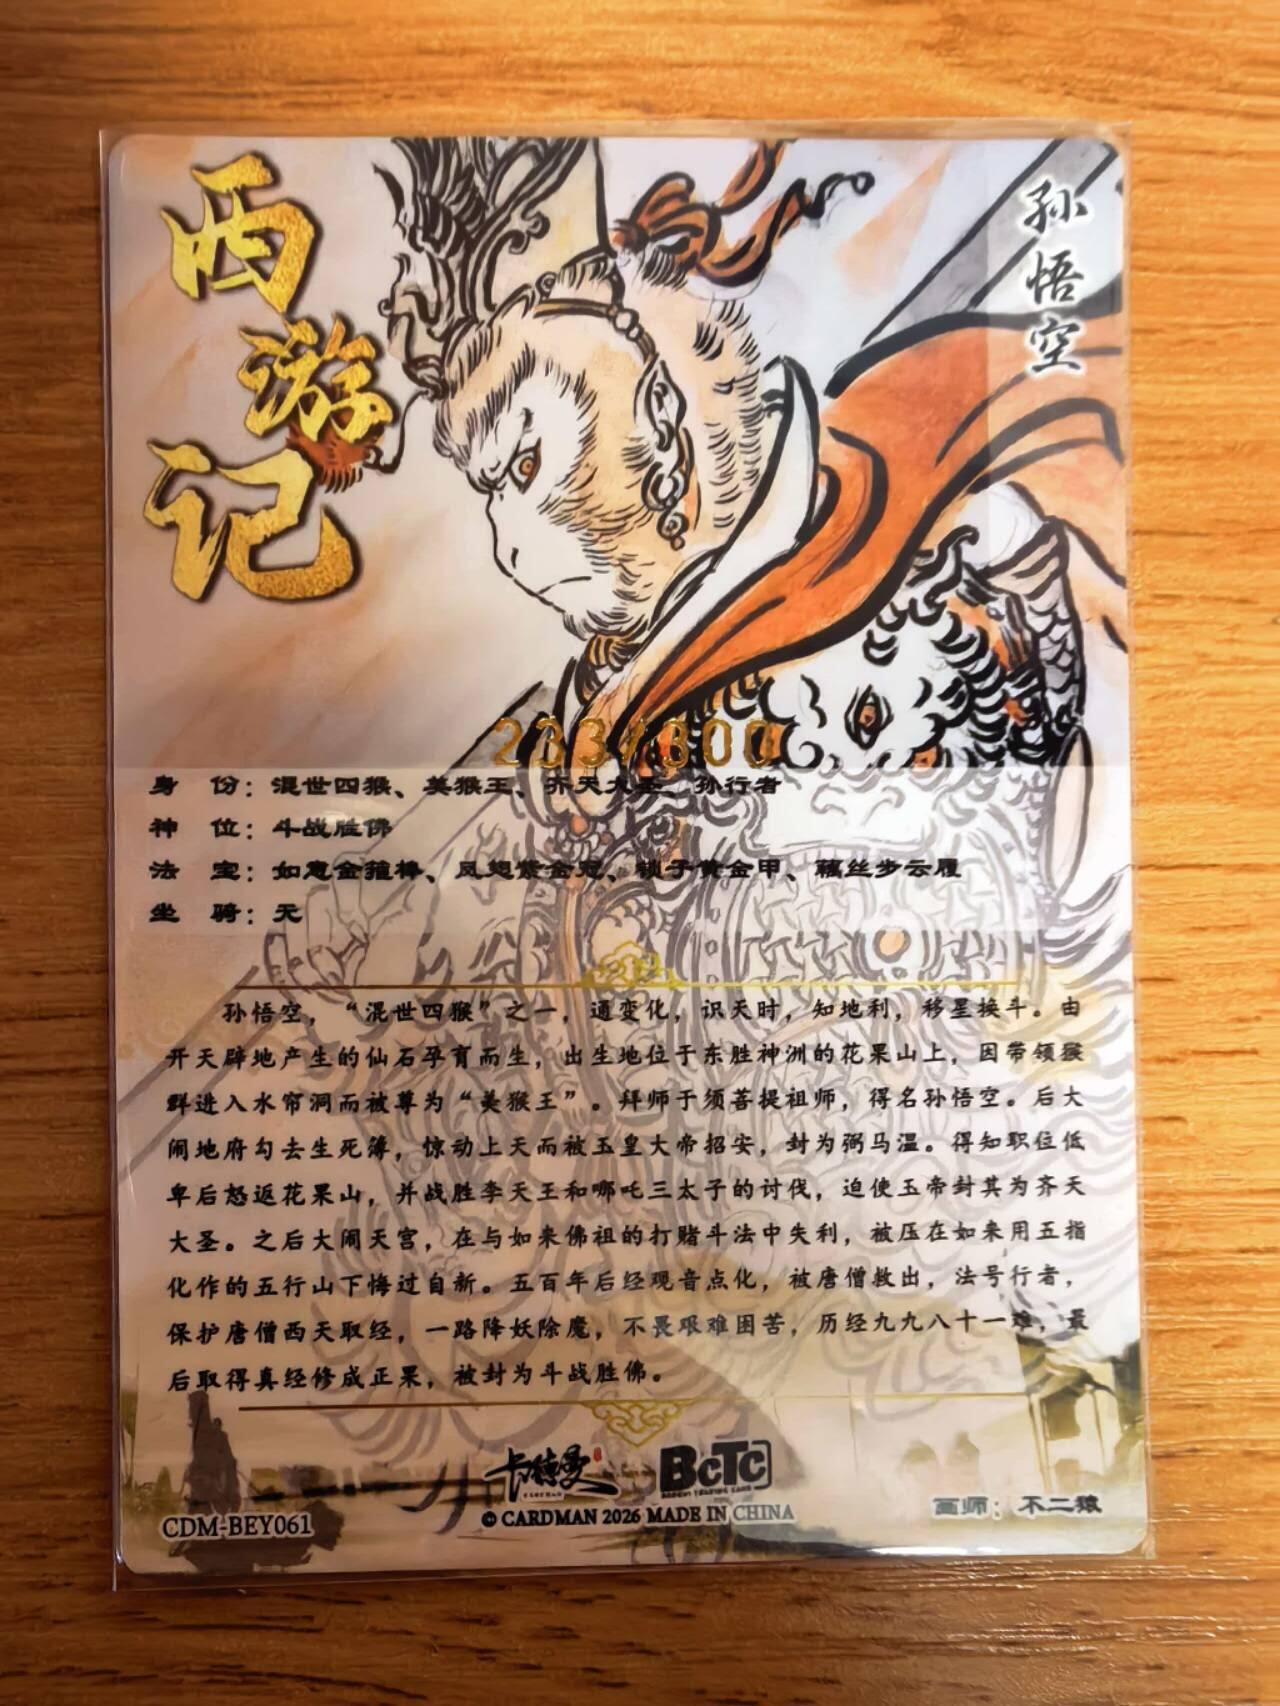 西游记
孙悟空
233/300
身 份：混世四猴、美猴王、齐天大圣、孙行者
神 位：斗战胜佛
法 宝：如意金箍棒、凤翅紫金冠、锁子黄金甲、藕丝步云履
坐 骑：无
孙悟空，“混世四猴”之一，通变化，识天时，知地利，移星换斗。由
开天辟地产生的仙石孕育而生，出生地位于东胜神洲的花果山上，因带领猴
群进入水帘洞而被尊为“美猴王”。拜师于须菩提祖师，得名孙悟空。后大
闹地府勾去生死簿，惊动上天而被玉皇大帝招安，封为弼马温。得知职位低
卑后怒返花果山，并战胜李天王和哪吒三太子的讨伐，迫使玉帝封其为齐天
大圣。之后大闹天宫，在与如来佛祖的打赌斗法中失利，被压在如来用五指
化作的五行山下悔过自新。五百年后经观音点化，被唐僧救出，法号行者，
保护唐僧西天取经，一路降妖除魔，不畏艰难困苦，历经九九八十一难，最
后取得真经修成正果，被封为斗战胜佛。
卡德曼
BCTC
CDM-BEY061
© CARDMAN 2026 MADE IN CHINA
画师：不二猿